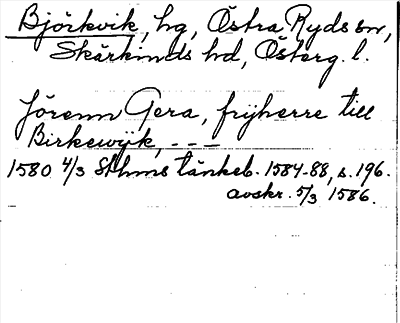 Björkvik, hg, Östra Ryds sn,
Skärkinds hd, Österg. l.
Jörenn Gera, frijherre till
Birkewijk, - - -
1580 4/3 Sthms tänkeb. 1584-88, s. 196.
avskr. 5/3 1586.